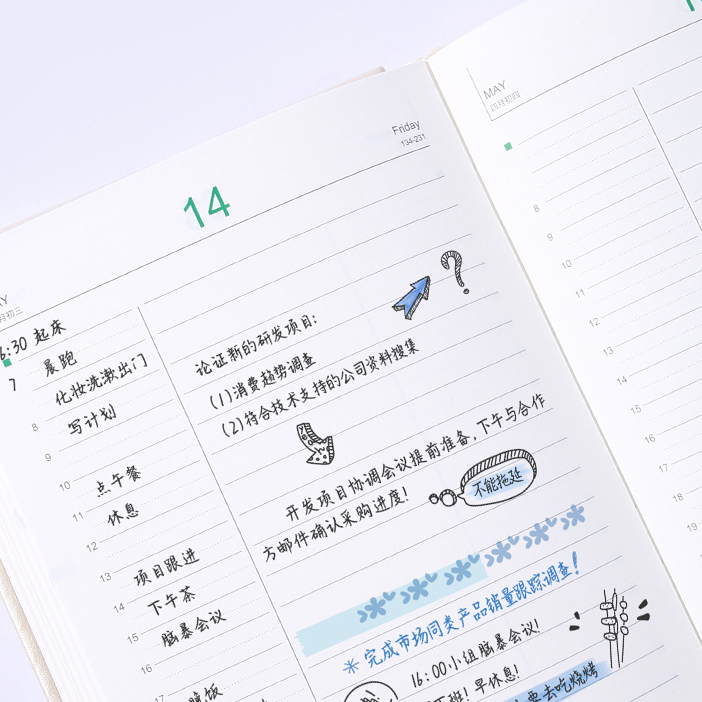 14
Friday
134-231
月初三
6:30 起床
7
晨跑
化妆洗漱出门
8
写计划
9
10
点午餐
11
休息
12
13
项目跟进
14
下午茶
15
脑暴会议
16
17
论证新的研发项目:
(1)消费趋势调查
(2)符合技术支持的公司资料搜集
开发项目协调会议提前准备,下午与合作
方邮件确认采购进度!
不能拖延
完成市场同类产品销量跟踪调查!
16:00小组脑暴会议!
下班!早休息!
要去吃烧烤
MAY
四月初四
8
9
10
11
12
13
14
15
16
17
18
19